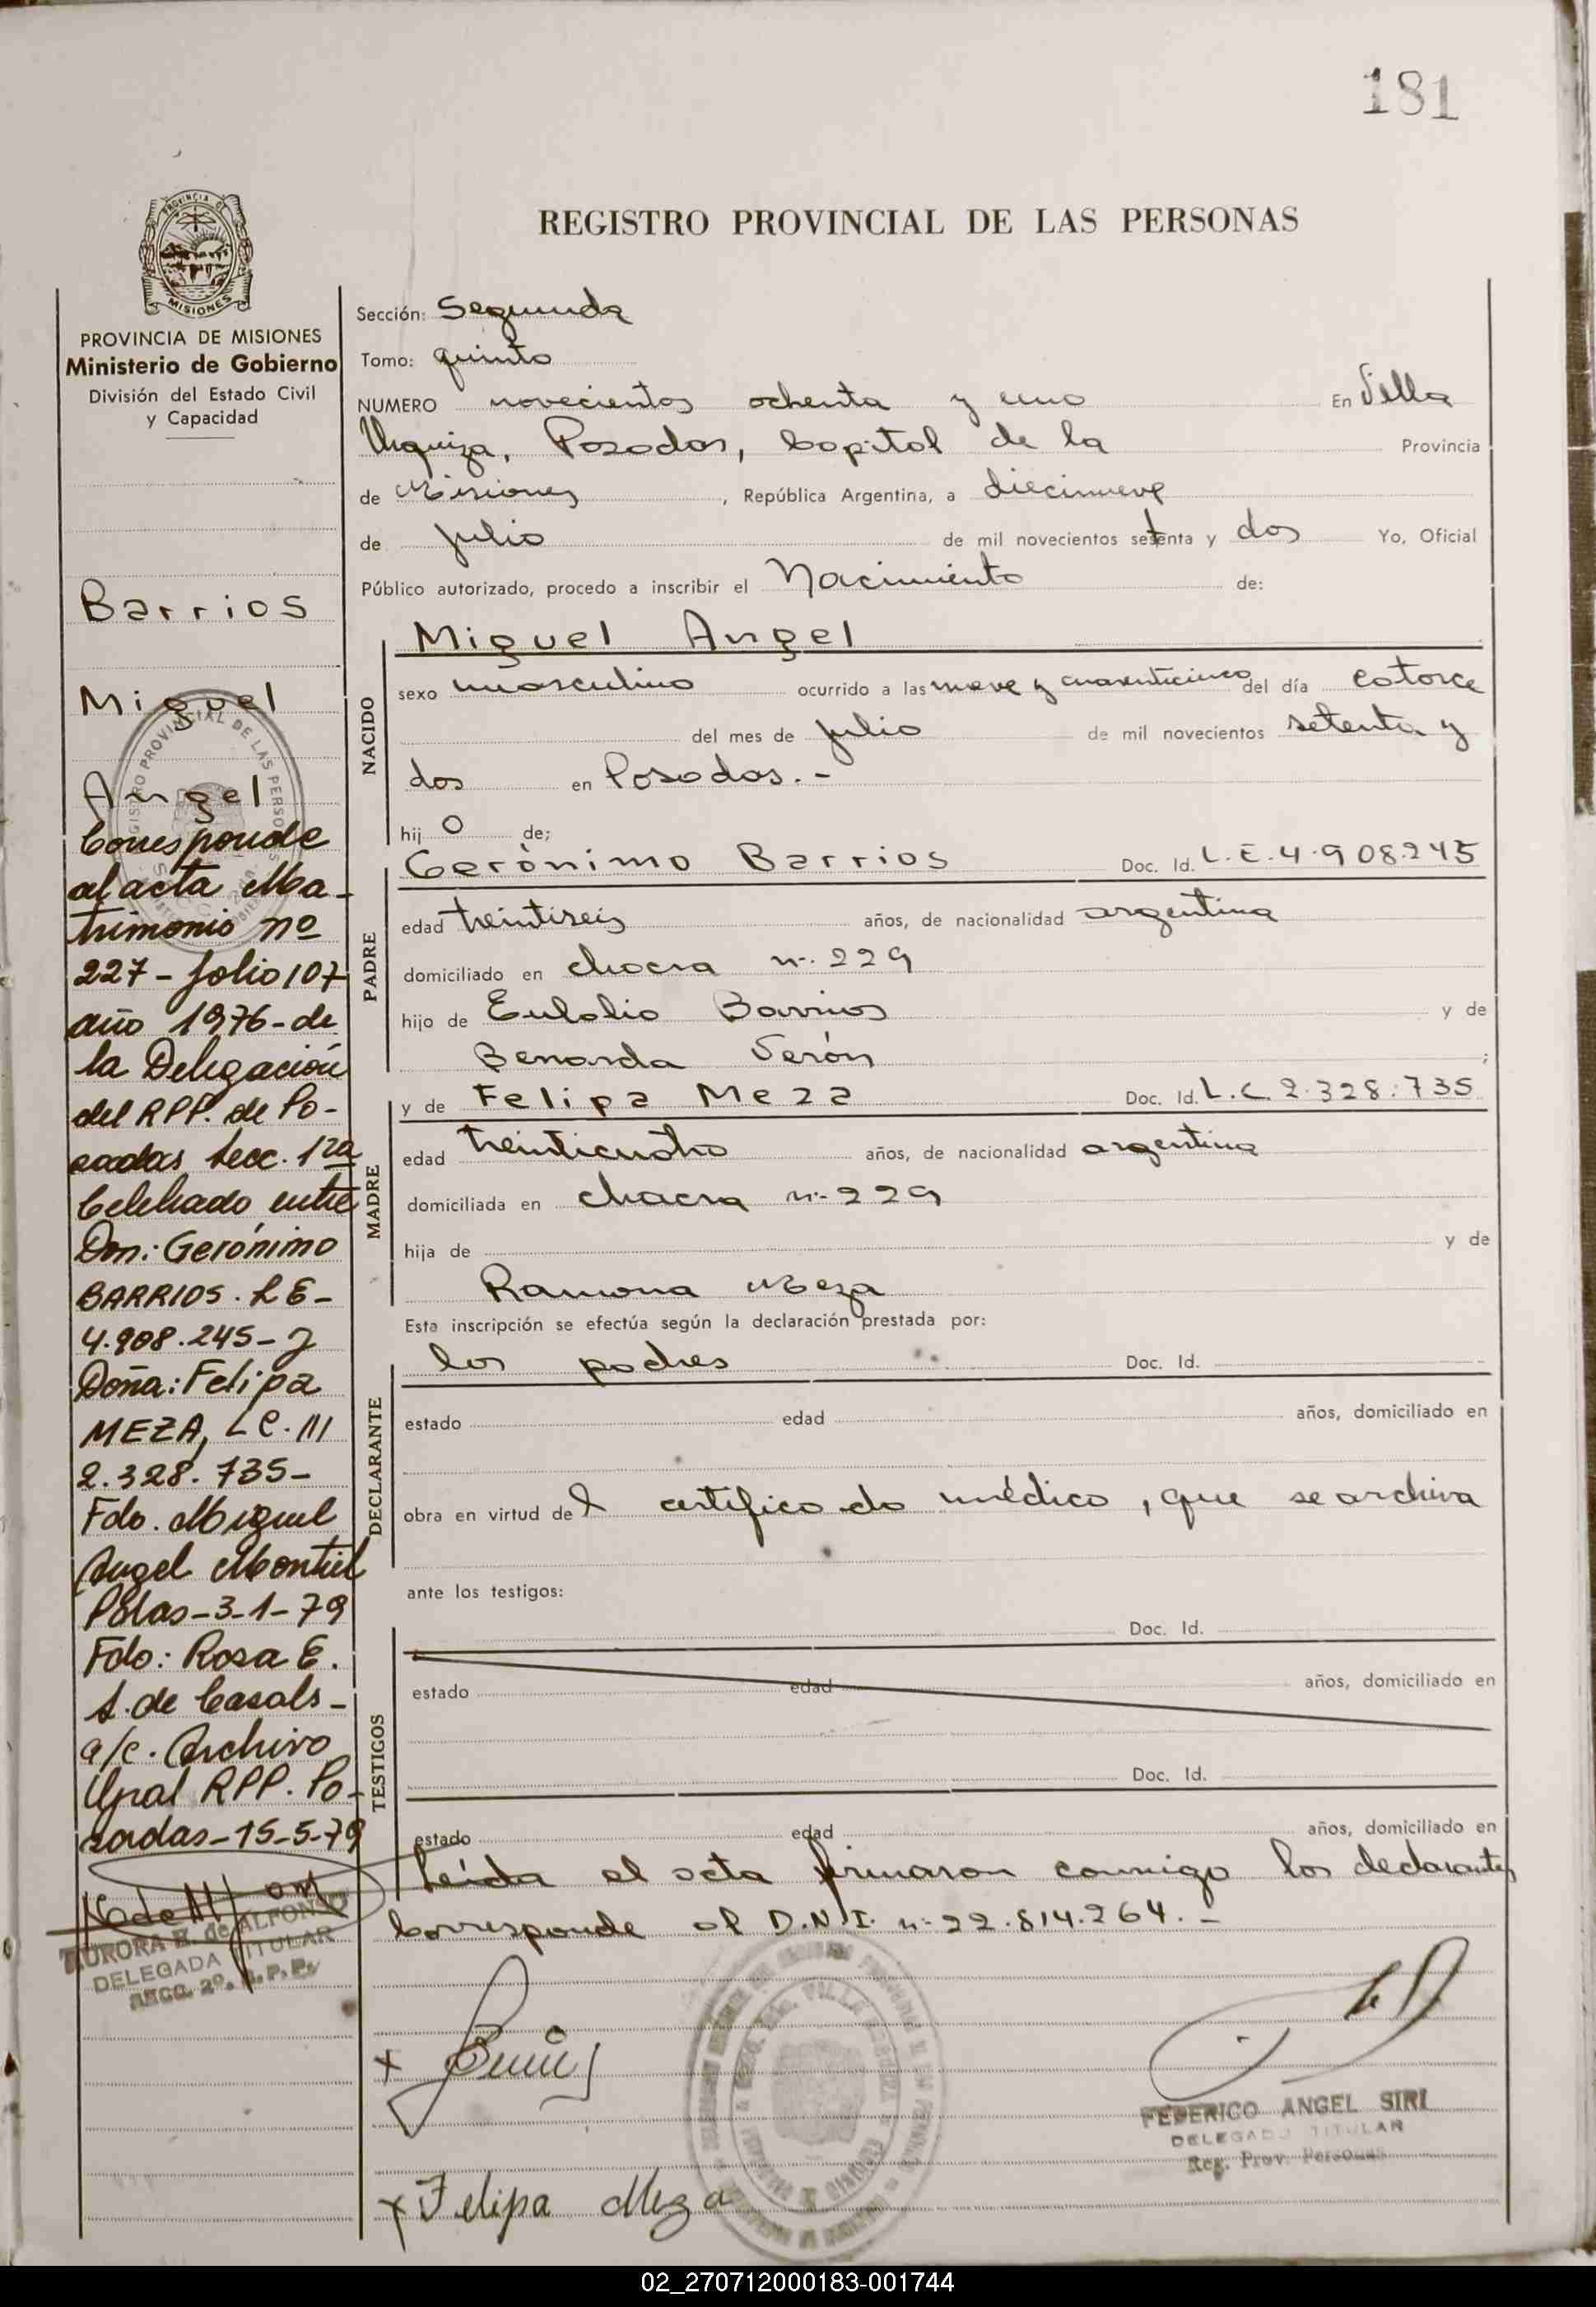 181
PROVINCIA DE
MISIONES
REGISTRO PROVINCIAL DE LAS PERSONAS
PROVINCIA DE MISIONES
Ministerio de Gobierno
División del Estado Civil
y Capacidad
Barrios
Miguel
Angel
Corresponde
al acta Ma-
trimonio nº
227 - folio 107
año 1976 - de
la Delegación
del RPP. de Po-
sadas Secc. 1ra
Celebrado entre
Don: Gerónimo
BARRIOS. LE-
4.908.245- y
Doña: Felipa
MEZA, LC.
2.328.735-
Fdo. Miguel
Angel Montiel
Pdas-3-1-79
Fdo: Rosa E.
de Casals-
a/c. Archivo
Gral RPP. Po-
sadas-15-5-79
AURORA B. de ALFONSO
DELEGADA TITULAR
SECC. 2º. R.P.P.
Sección: Segunda
Tomo: quinto
NUMERO novecientos ochenta y uno En Villa
Urquiza, Posadas, Capital de la Provincia
de Misiones, República Argentina, a diecinueve
de Julio de mil novecientos setenta y dos Yo, Oficial
Público autorizado, procedo a inscribir el Nacimiento de:
NACIDO
Miguel Angel
sexo masculino ocurrido a las nueve y cuarenticinco del día catorce
del mes de Julio de mil novecientos setenta y
dos en Posadas.-
hij o de;
PADRE
Gerónimo Barrios Doc. Id. L.E.4.908.245
edad treintiseis años, de nacionalidad argentina
domiciliado en chacra nº 229
hijo de Eulalio Barrios y de
Benarda Verón ;
MADRE
y de Felipa Meza Doc. Id. L.C.2.328.735
edad treinticuatro años, de nacionalidad argentina
domiciliada en chacra nº 229
hija de y de
Ramona Meza
Esta inscripción se efectúa según la declaración prestada por:
DECLARANTE
los padres Doc. Id.
estado edad años, domiciliado en
obra en virtud del certificado médico, que se archiva
ante los testigos:
TESTIGOS
Doc. Id.
estado edad años, domiciliado en
Doc. Id.
estado edad años, domiciliado en
Leída el acta firmaron conmigo los declarantes
Corresponde al D.N.I. nº 22.814.264.-
x
x Felipa Meza
FEDERICO ANGEL SIRI
DELEGADO TITULAR
Reg. Prov. Personas
02_270712000183-001744